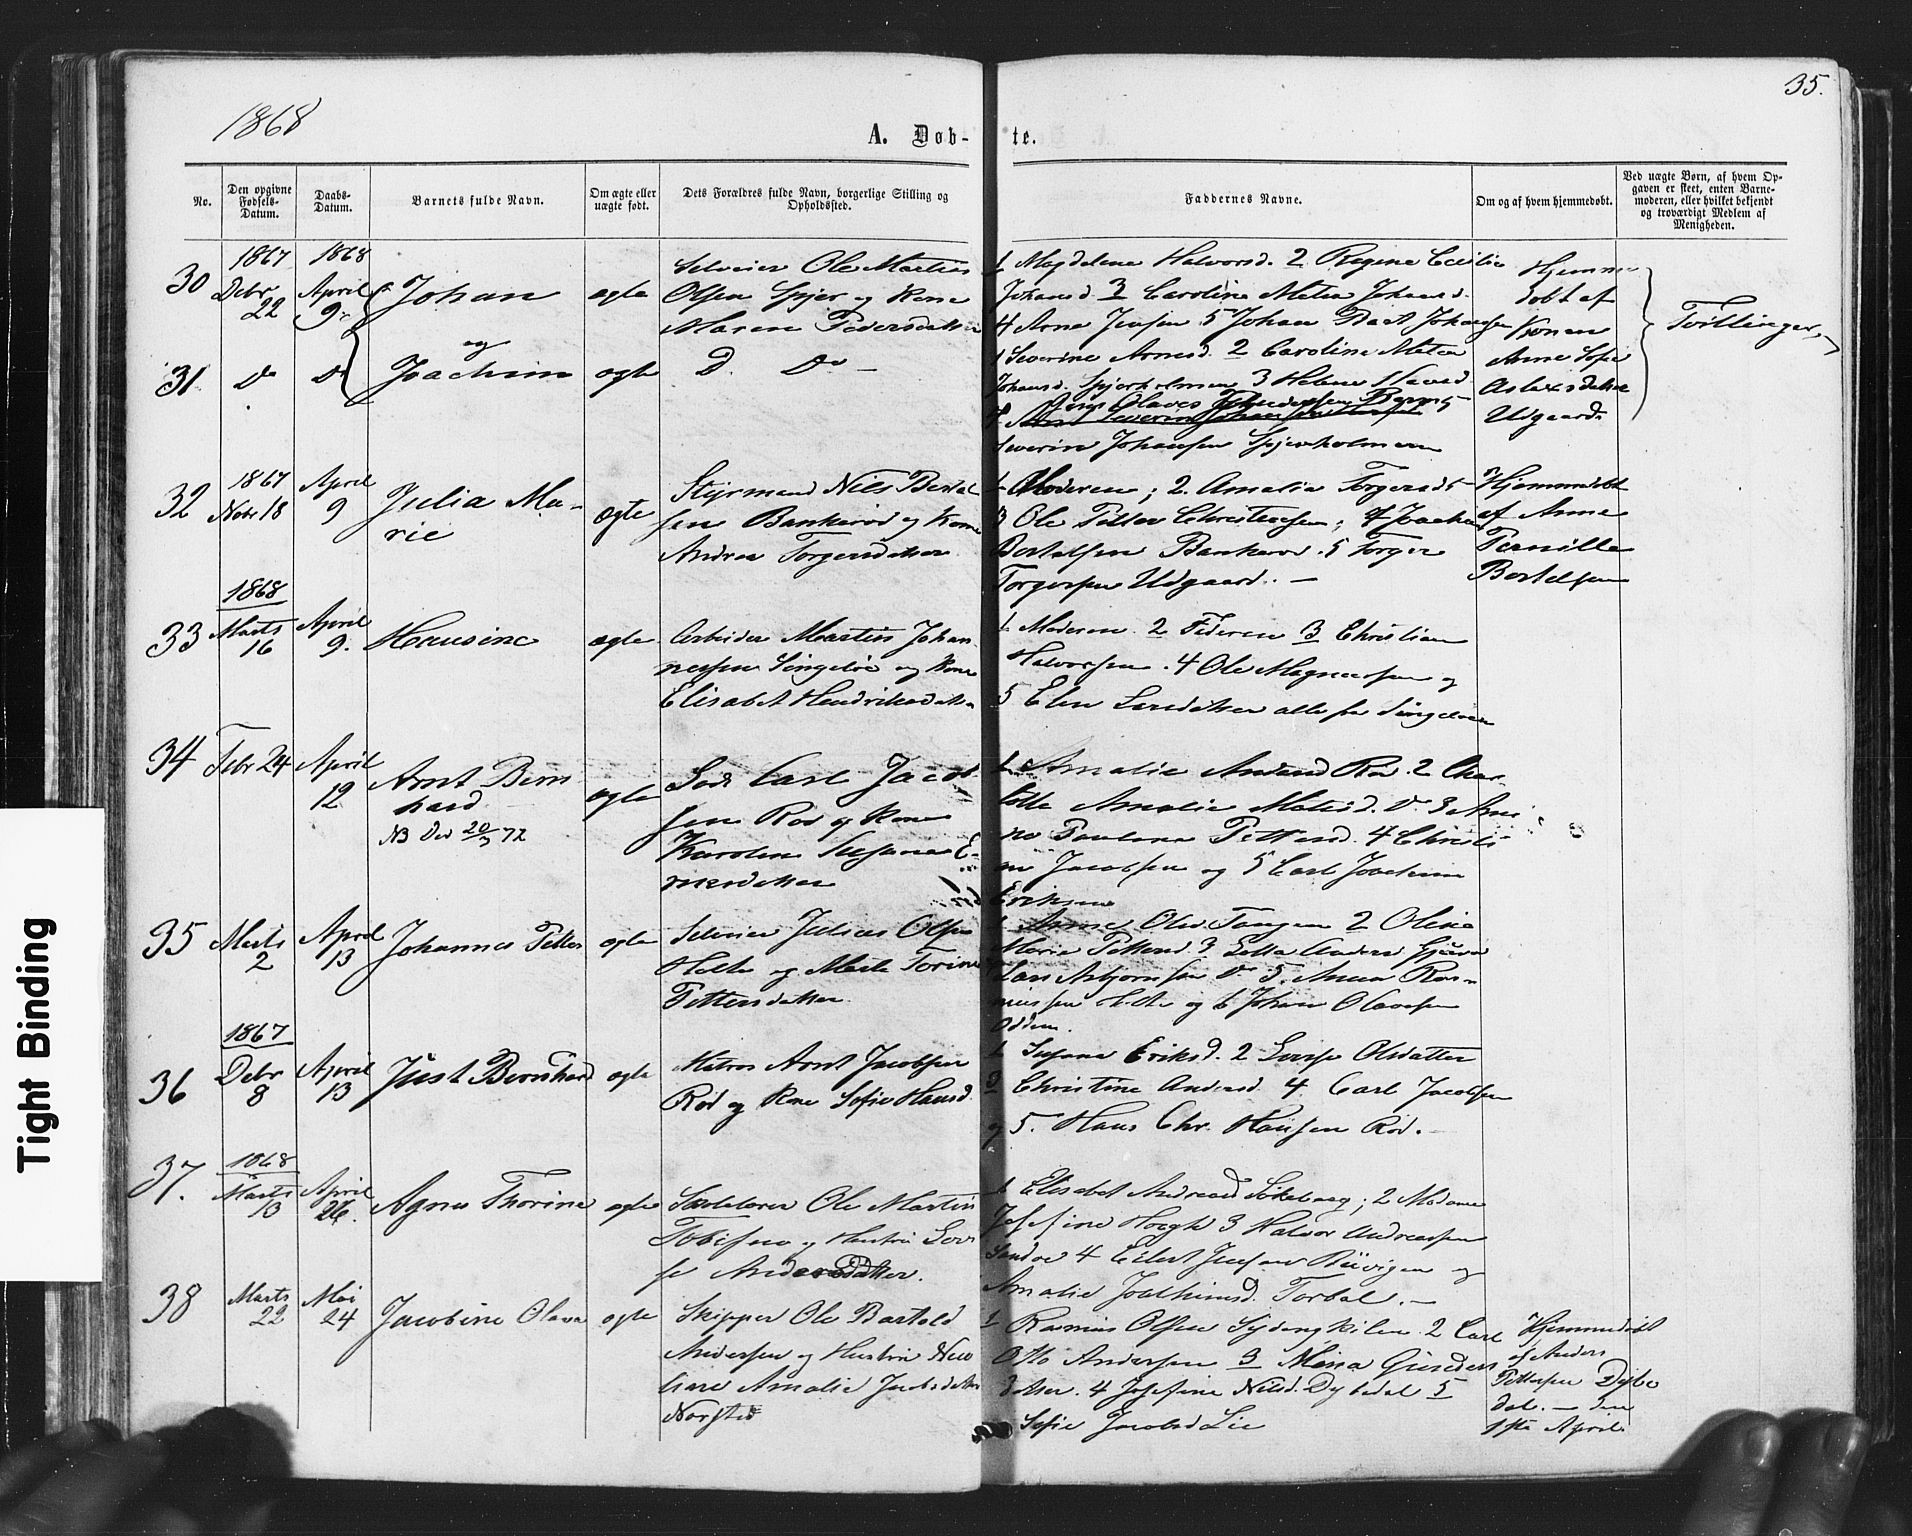 1868
35.
A. Døb-
te.
No.
Den opgivne Fødsels-Datum.
Daabs-Datum.
Barnets fulde Navn.
Om ægte eller uægte født.
Dets Forældres fulde Navn, borgerlige Stilling og Opholdssted.
Faddernes Navne.
Om og af hvem hjemmedøbt.
Ved uægte Børn, af hvem Opgaven er skeet, enten Barnemoderen, eller hvilket bekjendt og troværdigt Medlem af Menigheden.
30
1867
Debr
22
1868
April
9
Johan
og
ægte
Selveier Ole Martin
Olsen Spjer og Kone
Maren Pedersdatter
1 Magdelene Halvorsd. 2 Regine Cecilie
Johansd 3 Caroline Matea Johansd.
4 Arne Jensen 5 Johan Johansen
Hjemme
døbt af
Konen
Anne Sofie
Aslaksdatter
Udgaard
Tvillinger
31
Do
Do
Joachim
ægte
D. Do
1 Severine Arnesd. 2 Caroline Matea
Johansd. Spjerholmen 3 Helene
4
Severin Johansen Spjerholmen
32
1867
Novbr 18
April
9
Julia Ma-
rie
ægte
Styrmand Nils Bertel
sen Bankerød og Kone
Andrea Torgersdatter
1 Moderen; 2. Amalia Torgersd
3 Ole Petter Christensen; 4 Joachim
Bertelsen Bankerød. 5 Torger
Torgersen Udgaard. —
Hjemmedøbt
af Anne
Pernille
Bertelsen
33
1868
Marts
16
April
9.
Hansine
ægte
Arbeider Martin Johan-
nessen Singeløe og Kone
Elisabet Hendriksdatter
1 Moderen 2 Faderen 3 Christian
Halvorsen. 4 Ole Magnussen og
5 Elen Larsdatter alle fra Singeløen
34
Febr 24
April
12
Arnt Bern
hard
NB Død 20/3 72
ægte
Carl Jacob
sen Rød og Kone
Karoline Susanne E-
riksdatter
1 Amalie Andersd Rød. 2 Char
lotte Amalie Mathisd. Do 3
Paulina Pettersd. 4 Christi
Jacobsen og 5 Carl Joachim
Eriksen
35
Marts
2
April
13
Johannes Petter
ægte
Selveier Julius Olsen
Holte og Marte Torine
Pettersdatter
1 Anne Olsd Tangen 2 Oline
Marie Pettersd. 3
Lars Asbjørnsen Do 5. Anna Ras-
mussen Holte og 6 Johan Olavesen
Odden.
36
1867
Debr
8
April
13
Just Bernhard
ægte
Matros Arnt Jacobsen
Rød og Kone Sofie Hansd.
1 Susanne Eriksd. 2 Lovise Olsdatter
3 Christine Andersd. 4. Carl Jacobsen
og 5. Hans Chr. Hansen Rød. —
37.
1868
Marts
13
April
26.
Agnes Thorine
ægte
Skolelærer Ole Martin
Tobisen og Hustru Lovi
se Andersdatter.
1 Elisabet Andreasd; 2 Madame
Josefine Høegh 3 Halvor Andreassen
Sandøe 4 Eilert
Amalie Joachimsd. Torbal. —
38
Marts
22
Mai
24
Jacobine Olava
ægte
Skipper Ole Bartold
Andersen og Hustru
Amalie Jacobsdatter
Norsted
1 Rasmus Olsen Sydengkilen. 2 Carl
Otto Andersen 3 Mina Gunders
datter. 4 Josefine Nilsd. Dybedal 5
Sofie Jacobsd Lie
Hjemmedøbt
af Anders
Pettersen Dybe
dal. — den
1ste April.
Tight Binding